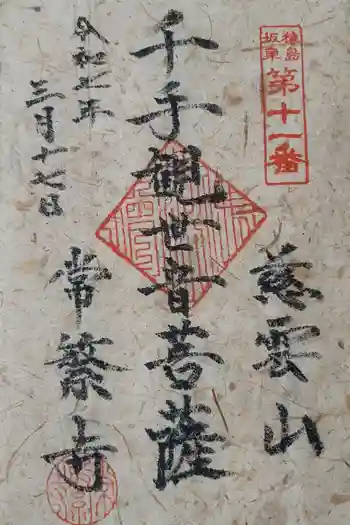 猿島
坂東
第十一番
慈雲山
千手観世音菩薩
常繁寺
令和二年
三月十七日